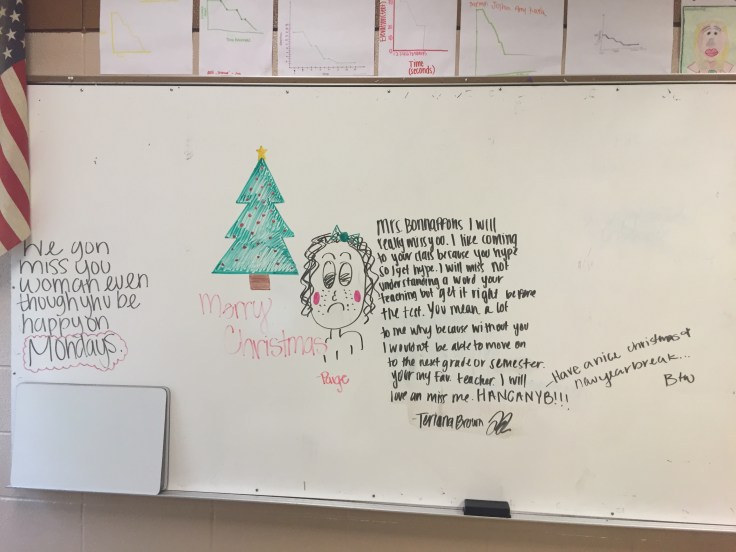 We gon
miss you
woman even
though yhu be
happy on
Mondays.
Merry
Christmas
-Paige
Mrs. Bonnaffons I will
really miss you. I like coming
to your class because you hype
so I get hype. I will miss not
understanding a word your
teaching but get it right before
the test. You mean a lot
to me why because without you
I wouldn't be able to move on
to the next grade or semester.
your my fav. teacher. I will
love an miss me. HANGANYB!!!
-Teriana Brown
-Have a nice christmas &
new year break...
Btw
Time
(seconds)